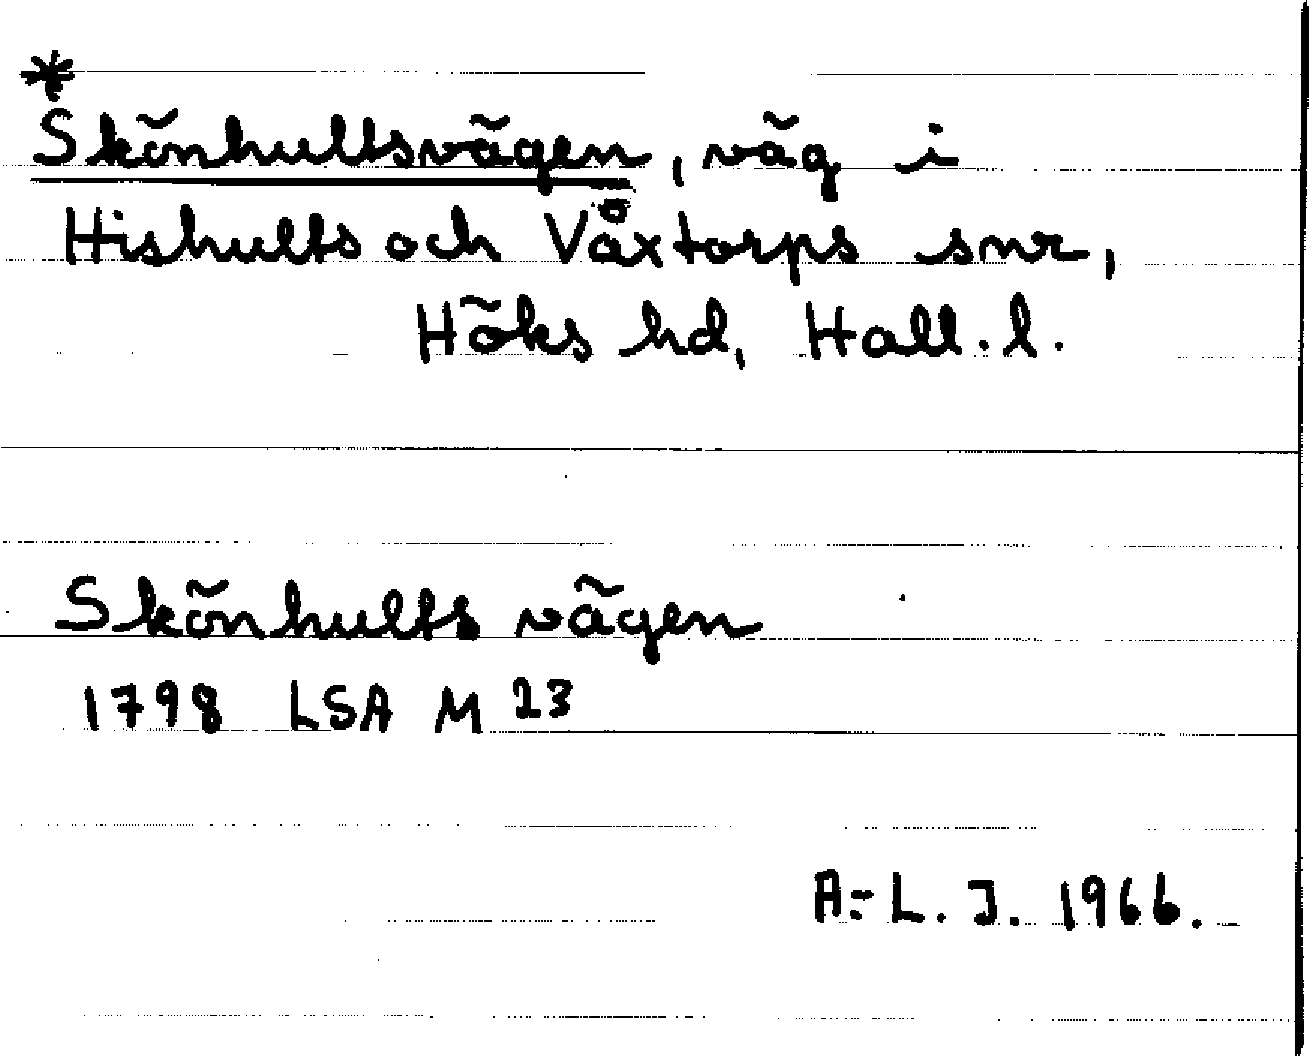 *
Skönhultsvägen, väg i
Hishults och Våxtorps snr,
Höks hd, Hall. l.
Skönhults vägen
1798 LSA M 23
A-L. J. 1966.